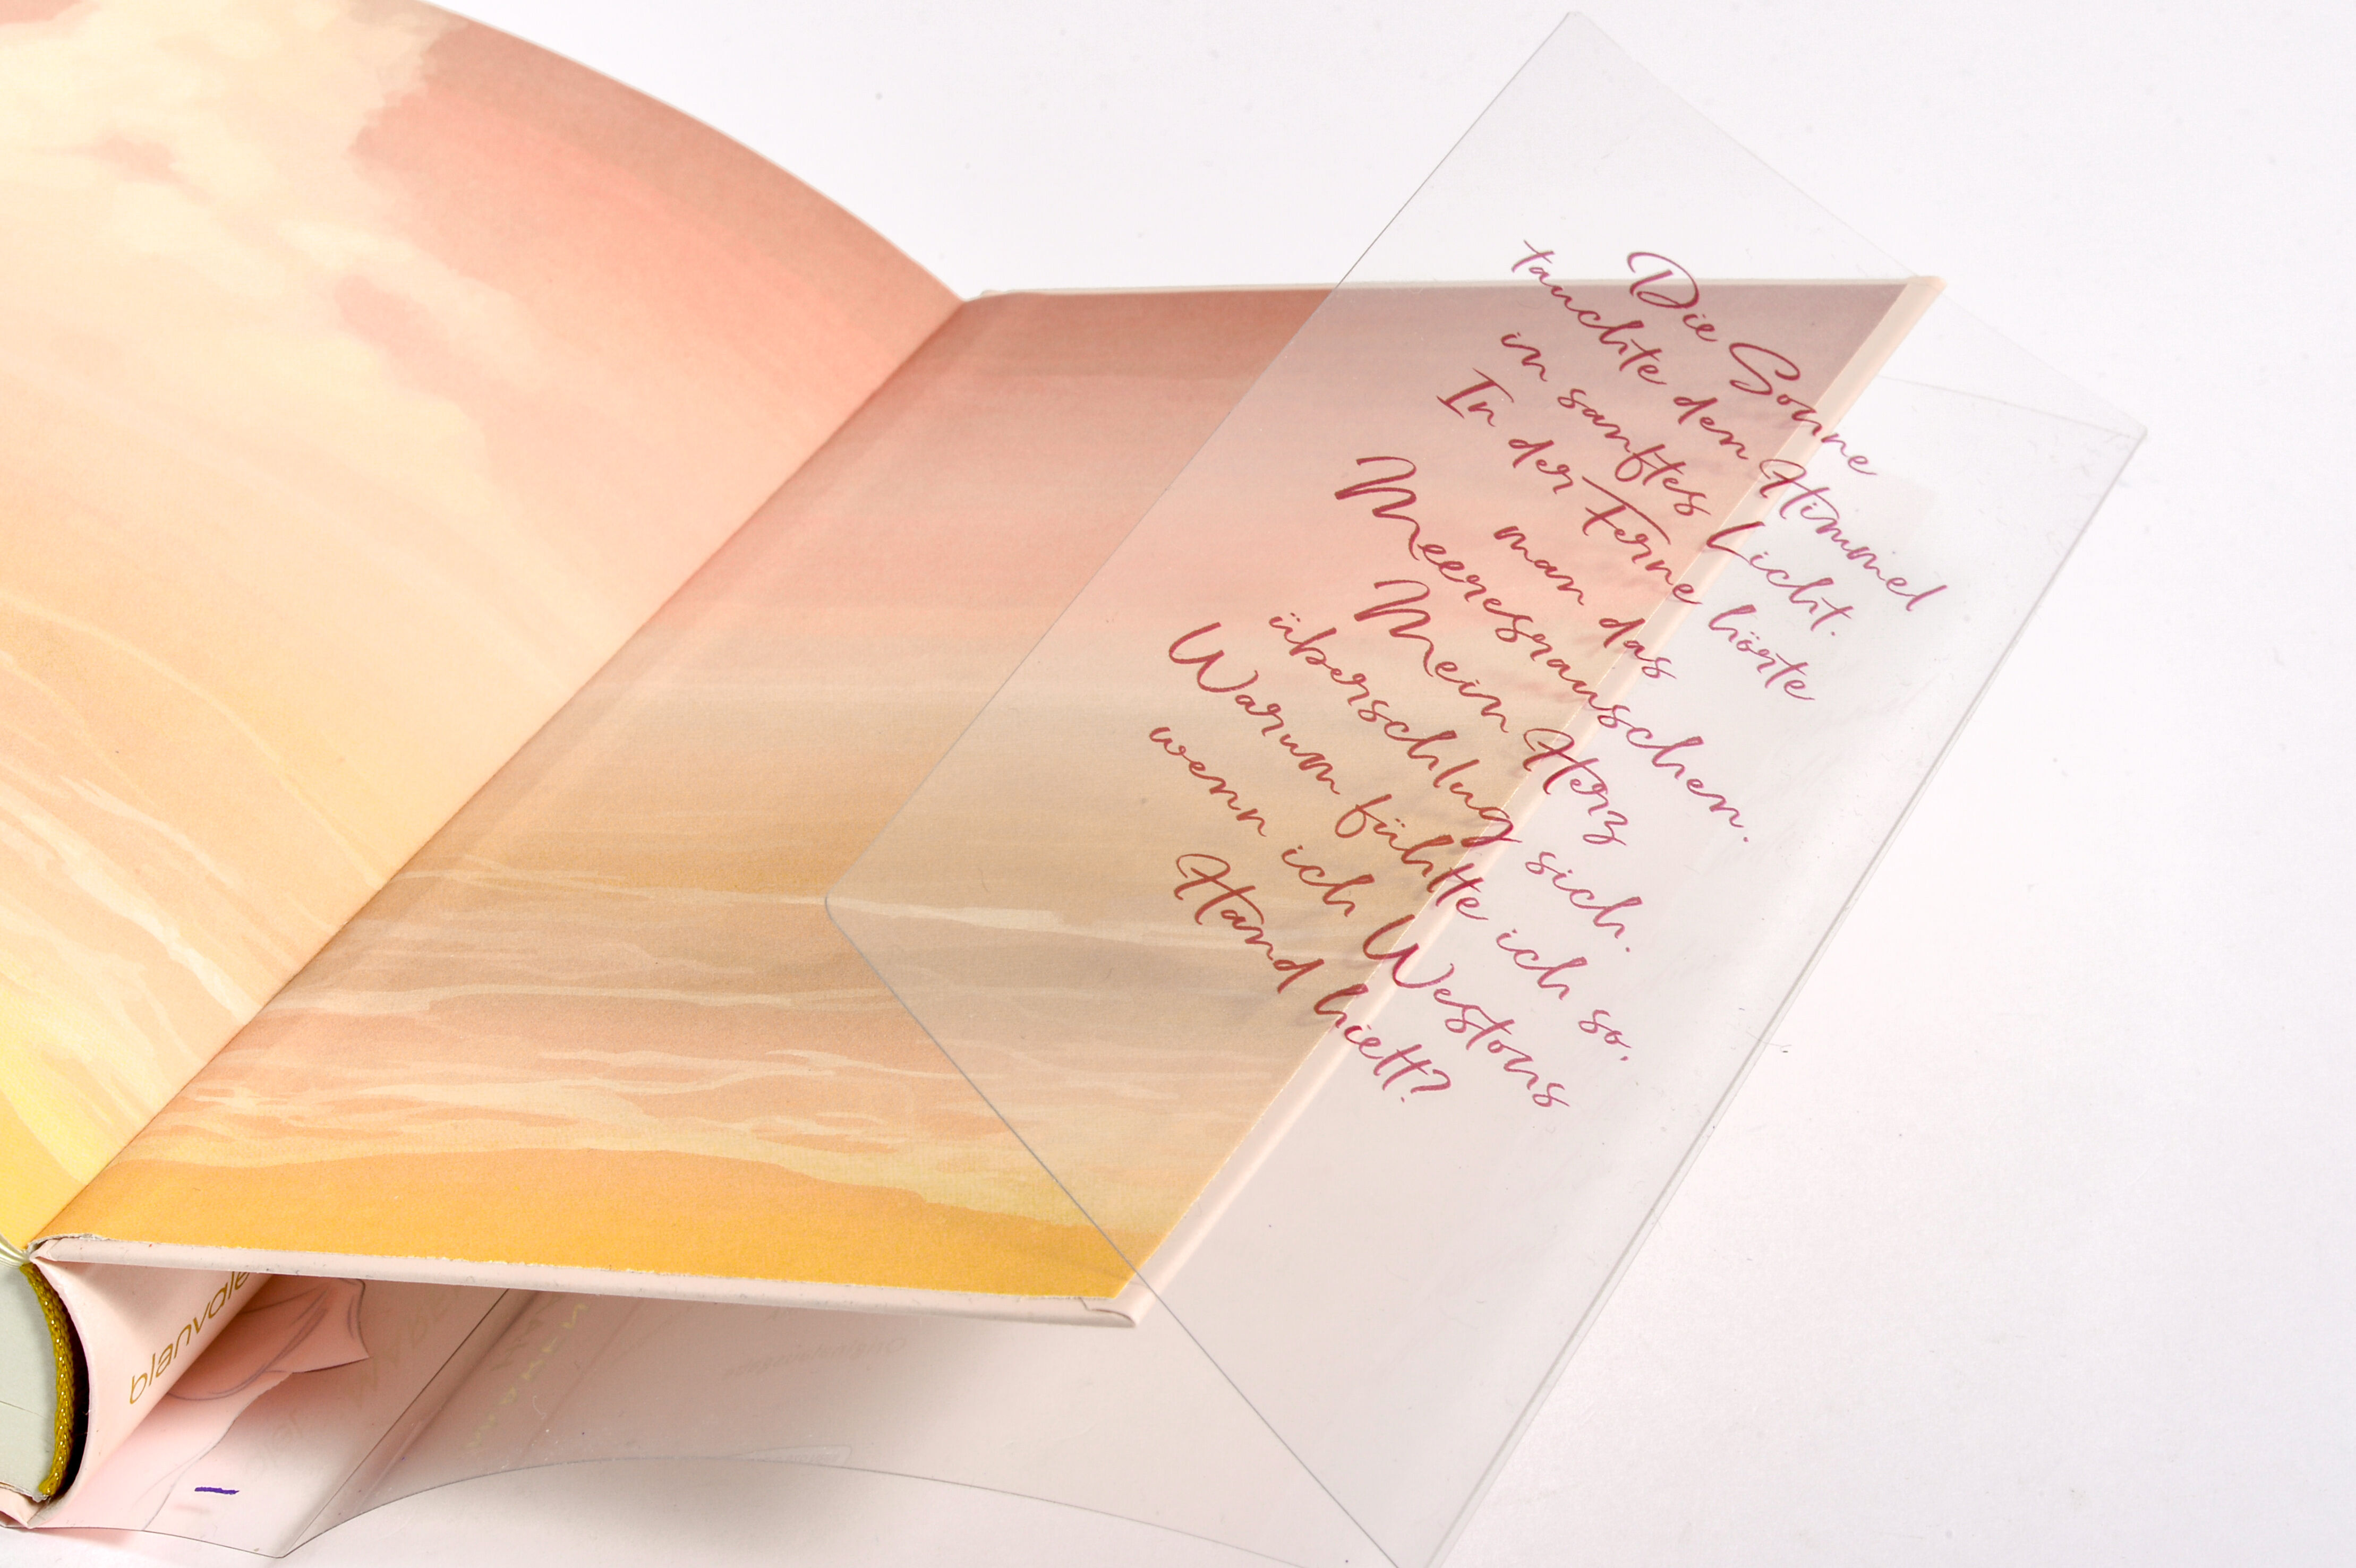 Die Sonne
tauchte den Himmel
in sanftes Licht.
In der Ferne hörte
man das
Meeresrauschen.
Mein Herz
überschlug sich.
Warum fühlte ich so,
wenn ich Westons
Hand hielt?
blanvalet